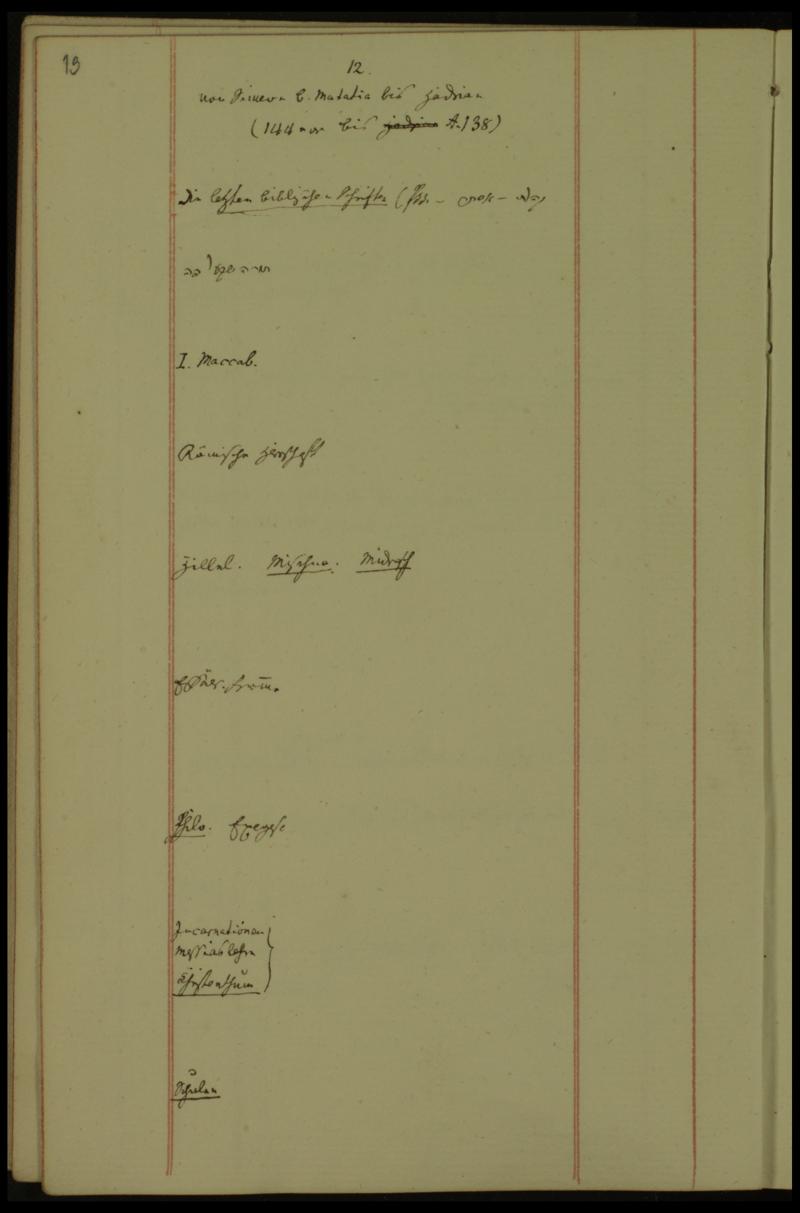 19
12.
von Simeon b. Matatia bis Hadrian
(144 vor bis Hadrian A. 138)
Die letzten biblischen Schriften (Pss. –
I. Maccab.
Römische Herrschaft
Hillel. Mischna. Midrasch
Philo. Exegese
Incarnationen
Messiaslehre
Christenthum
Schulen